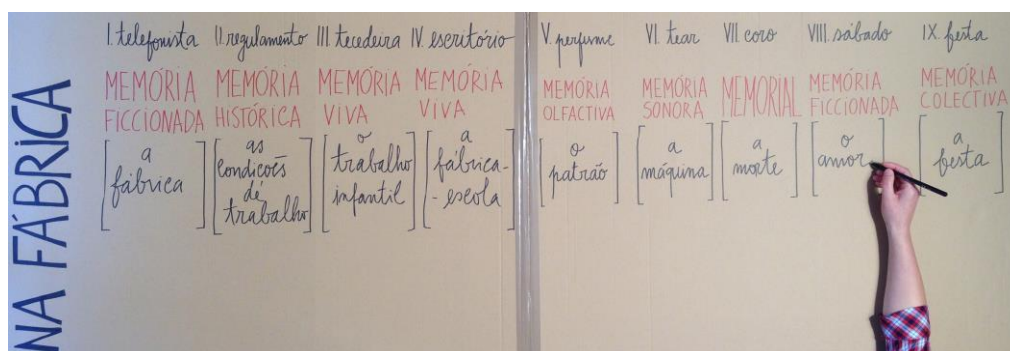 NA FÁBRICA
I. telefonista
MEMÓRIA
FICCIONADA
a
fábrica
II. regulamento
MEMÓRIA
HISTÓRICA
as
condições
de
trabalho
III. tecedeira
MEMÓRIA
VIVA
o
trabalho
infantil
IV. escritório
MEMÓRIA
VIVA
a
fábrica-
- escola
V. perfume
MEMÓRIA
OLFACTIVA
o
patrão
VI. tear
MEMÓRIA
SONORA
a
máquina
VII. coro
MEMORIAL
a
morte
VIII. sábado
MEMÓRIA
FICCIONADA
o
amor
IX. festa
MEMÓRIA
COLECTIVA
a
festa